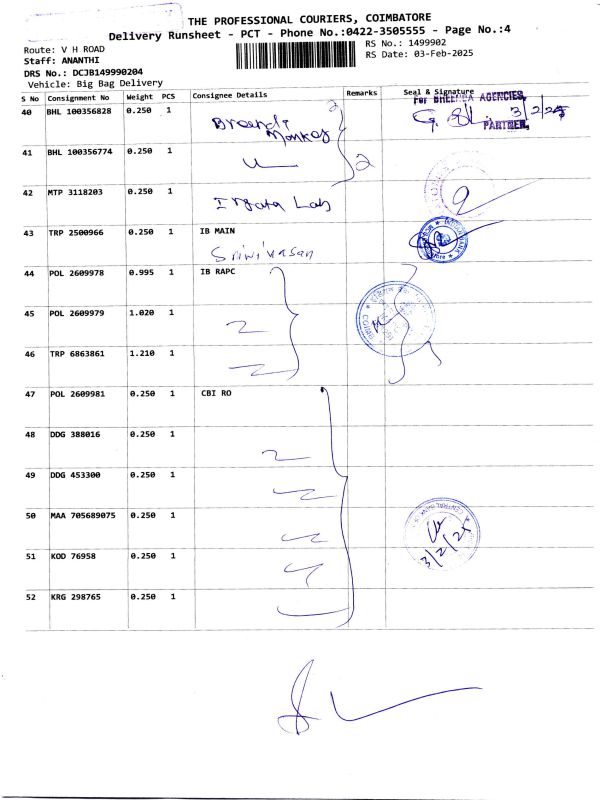 THE PROFESSIONAL COURIERS, COIMBATORE
Delivery Runsheet - PCT - Phone No.:0422-3505555 - Page No.:4
Route: V H ROAD
RS No.: 1499902
Staff: ANANTHI
RS Date: 03-Feb-2025
DRS No.: DCJB149990204
Vehicle: Big Bag Delivery
S No Consignment No Weight PCS Consignee Details Remarks Seal & Signature
For BHEEMBA AGENCIES,
40 BHL 100356828 0.250 1 2 3/2/25
PARTNER,
41 BHL 100356774 0.250 1 2
42 MTP 3118203 0.250 1 Lab
43 TRP 2500966 0.250 1 IB MAIN
Srinivasan
44 POL 2609978 0.995 1 IB RAPC
45 POL 2609979 1.020 1
46 TRP 6863861 1.210 1
47 POL 2609981 0.250 1 CBI RO
48 DDG 388016 0.250 1
49 DDG 453300 0.250 1
50 MAA 705689075 0.250 1
CENTRAL BANK
51 KOD 76958 0.250 1
3/2/25
52 KRG 298765 0.250 1